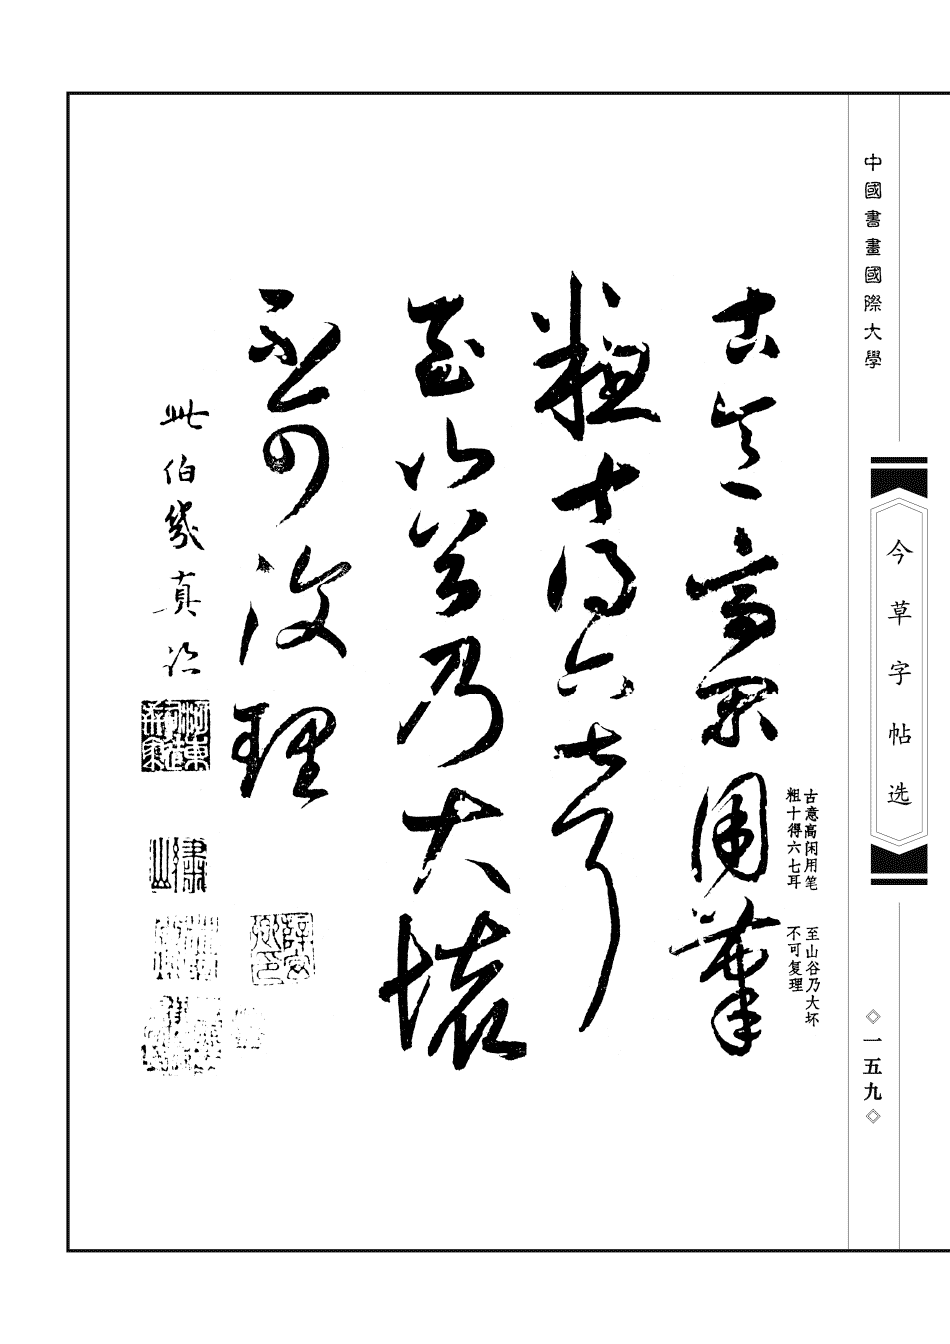 中國書畫國際大學
今草字帖选
◇一五九◇
古意高闲用笔
粗十得六七耳
至山谷乃大坏
不可复理
古意高閑用筆
粗十得六七耳
至山谷乃大壞
不可復理
此伯幾真迹